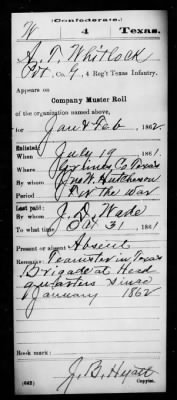 (Confederate.)
W 4 Texas.
A. T. Whitlock
Pvt, Co. 4 Reg't Texas Infantry.
Appears on
Company Muster Roll
of the organization named above,
for Jan & Feb, 1862.
Enlisted:
When July 19, 1861.
Where Grimes Co Texas
By whom Jno W. Hutcheson
Period For the war
Last paid:
By whom J. D. Wade
To what time Oct 31, 1861
Present or absent Absent
Remarks: Teamster in Texas
Brigade at Head
quarters since
January 1862
Book mark:
J. B. Hyatt
(642) Copyist.